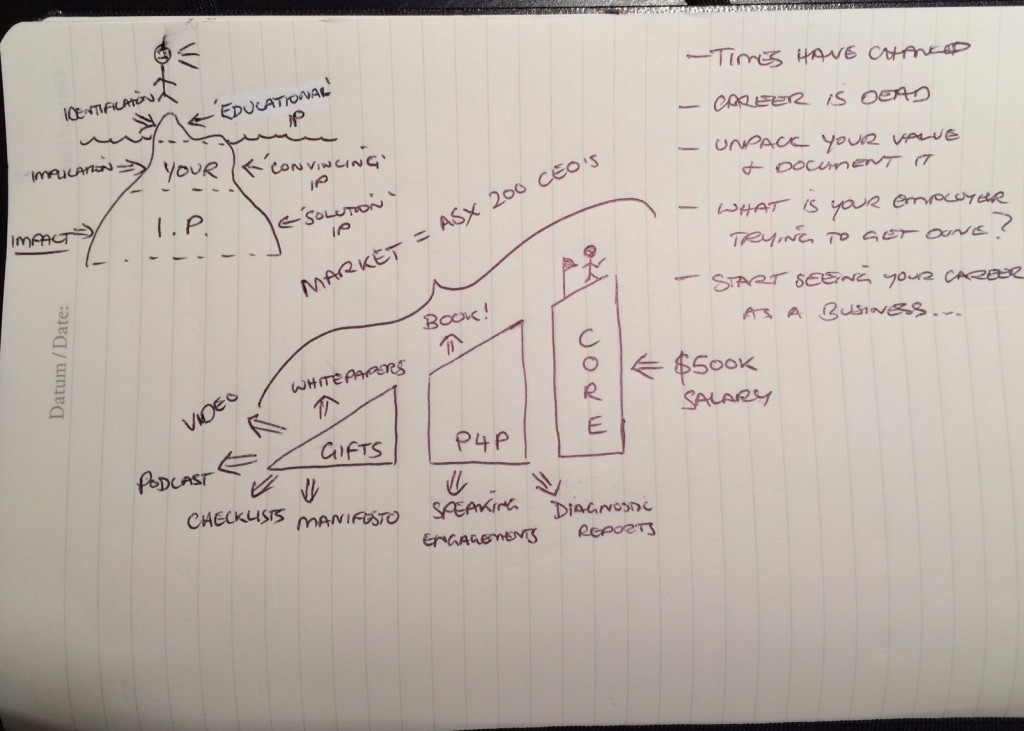 IDENTIFICATION
'EDUCATIONAL'
IP
IMPLICATION
YOUR
'CONVINCING'
IP
I.P.
'SOLUTION'
IP
IMPACT
- TIMES HAVE CHANGED
- CAREER IS DEAD
- UNPACK YOUR VALUE
+ DOCUMENT IT
- WHAT IS YOUR EMPLOYER
TRYING TO GET DONE?
- START SEEING YOUR CAREER
AS A BUSINESS...
MARKET = ASX 200 CEO'S
VIDEO
WHITEPAPERS
PODCAST
GIFTS
CHECKLISTS
MANIFESTO
BOOK!
P4P
SPEAKING
ENGAGEMENTS
DIAGNOSTIC
REPORTS
CORE
$500K
SALARY
Datum / Date: